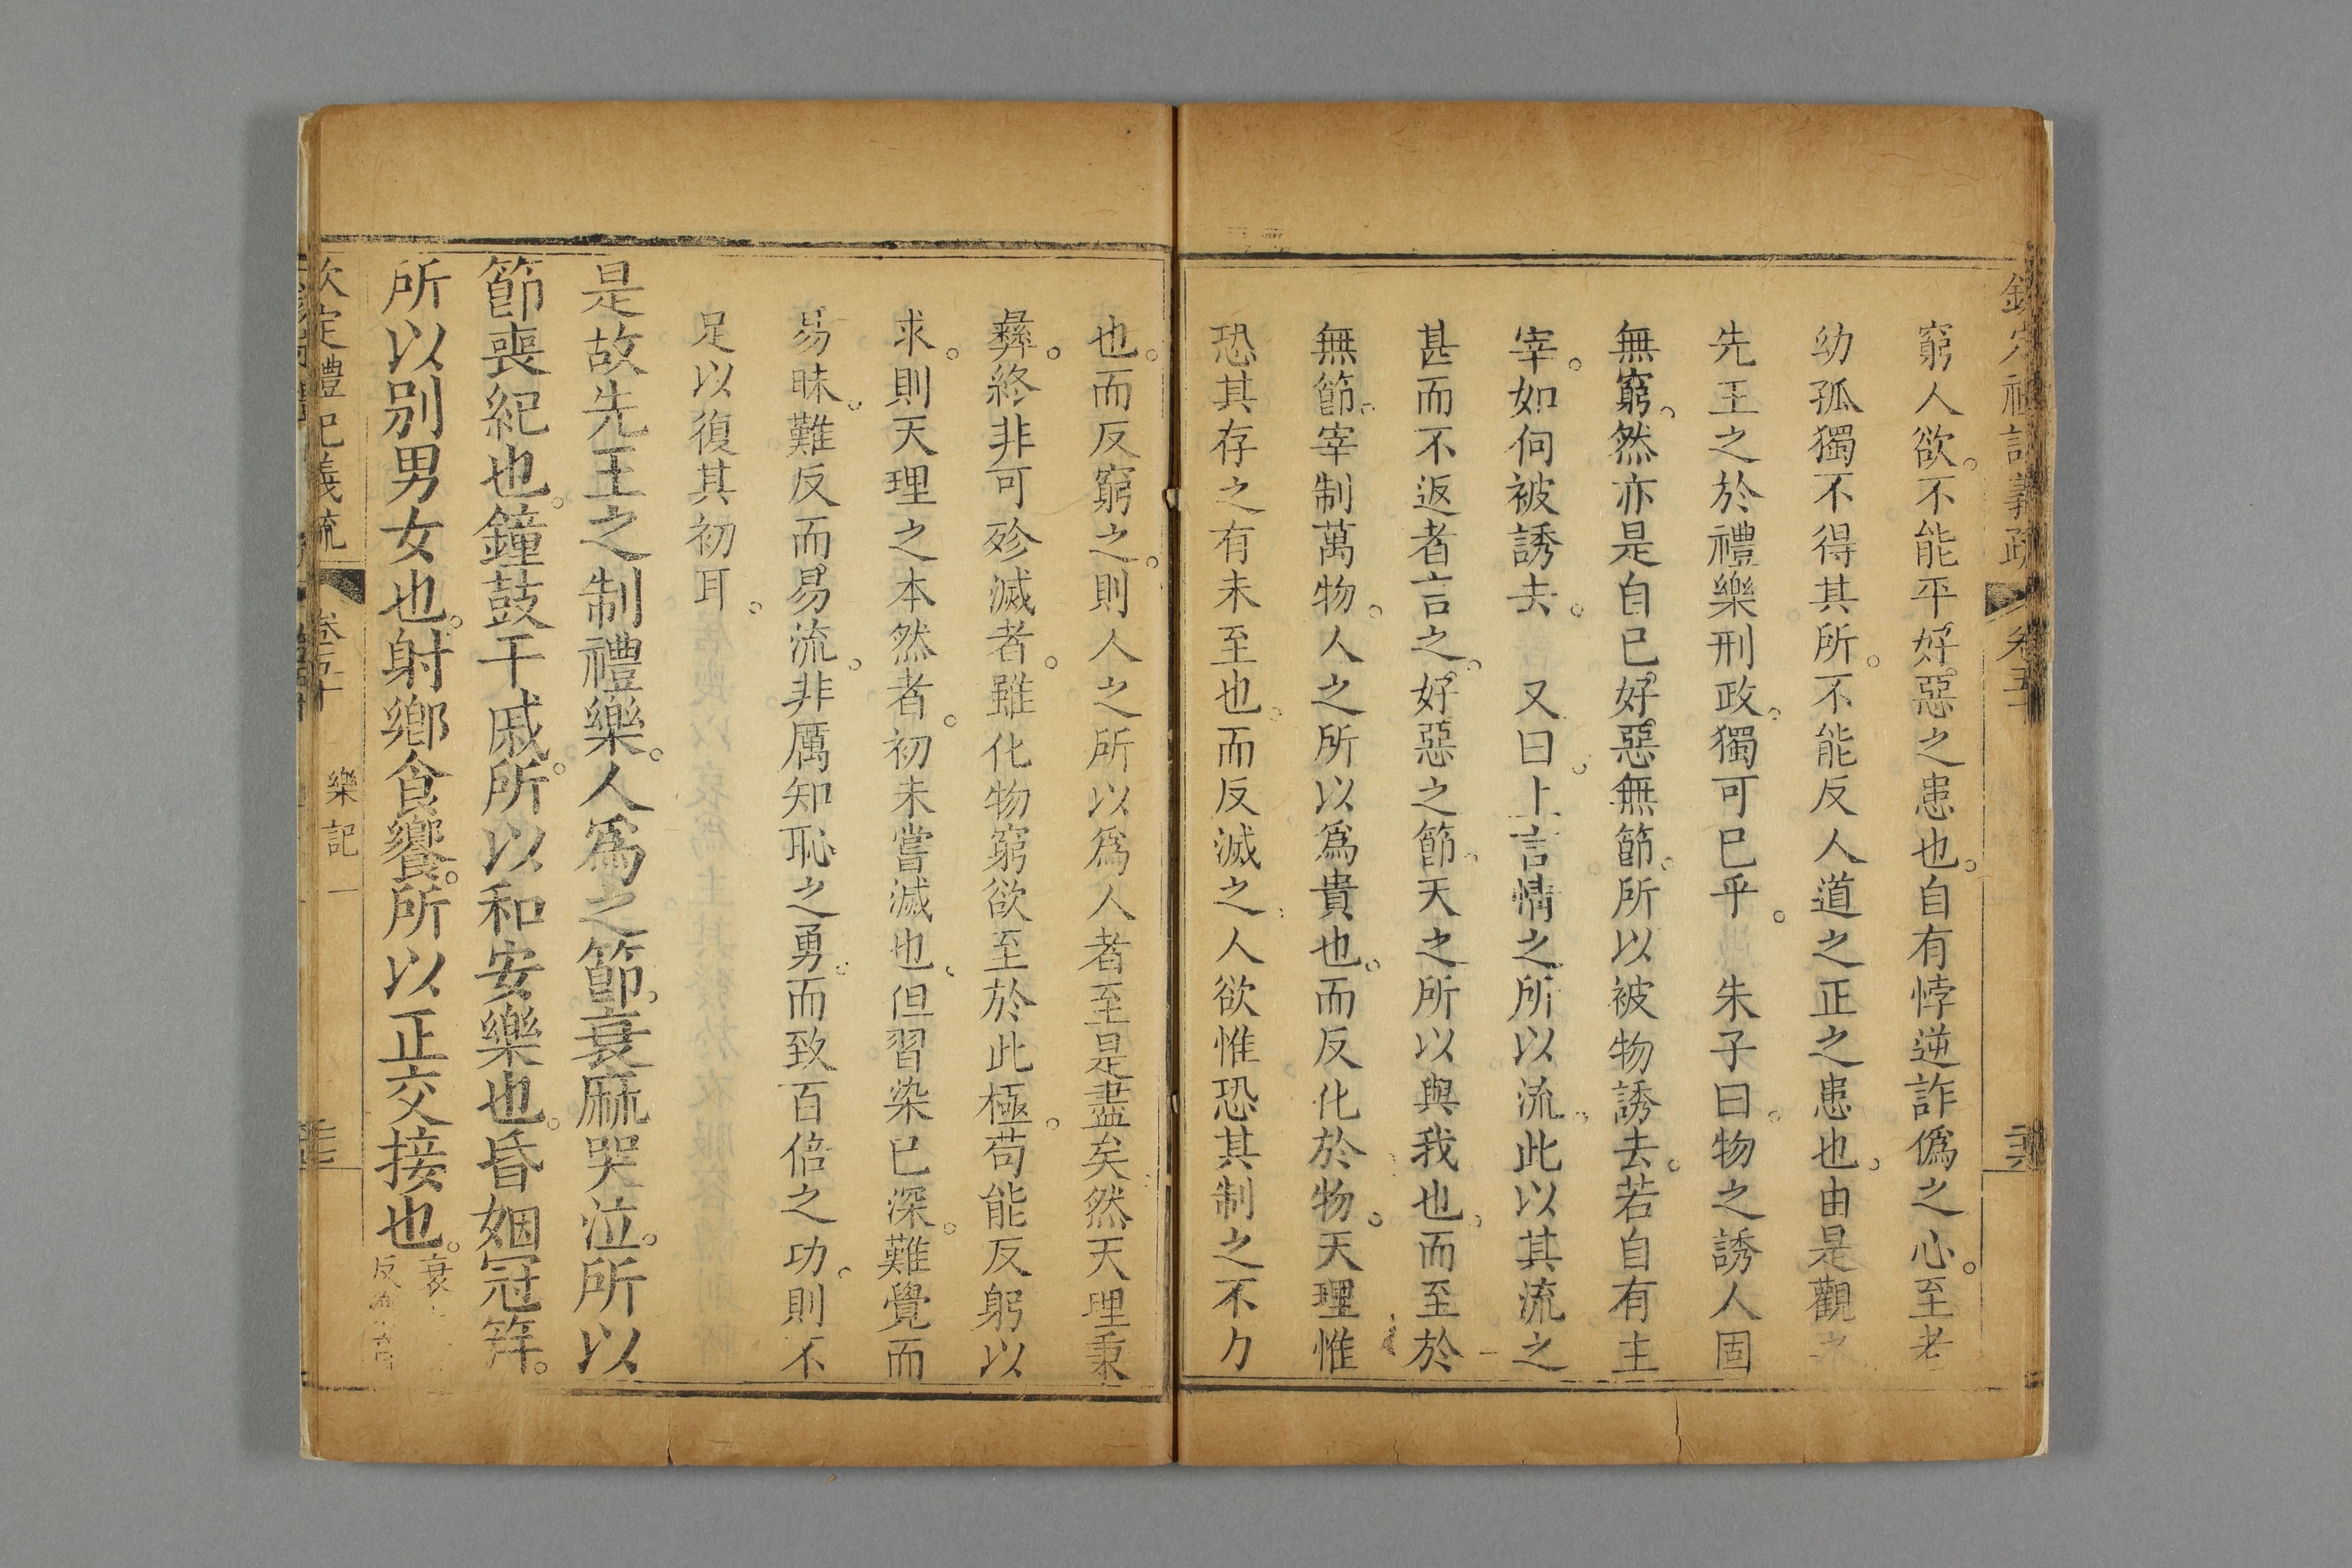 窮人欲。不能平好惡之患也。自有悖逆詐僞之心。至老
幼孤獨不得其所。不能反人道之正之患也。由是觀之
先王之於禮樂刑政。獨可已乎。朱子曰。物之誘人固
無窮。然亦是自己好惡無節。所以被物誘去。若自有主
宰。如何被誘去。又曰。上言情之所以流。此以其流之
甚而不返者言之。好惡之節。天之所以與我也。而至於
無節。宰制萬物。人之所以爲貴也。而反化於物。天理惟
恐其存之有未至也。而反滅之。人欲惟恐其制之不力
也。而反窮之。則人之所以爲人者至是盡矣。然天理秉
彝。終非可殄滅者。雖化物窮欲至於此極。苟能反躬以
求。則天理之本然者。初未嘗滅也。但習染已深。難覺而
易昧。難反而易流。非厲知恥之勇。而致百倍之功。則不
足以復其初耳。
是故先王之制禮樂。人爲之節。衰麻哭泣。所以
節喪紀也。鐘鼓干戚。所以和安樂也。昏姻冠筓。
所以別男女也。射鄉食饗。所以正交接也。衰
反
欽定禮記義疏 卷五十 樂記一